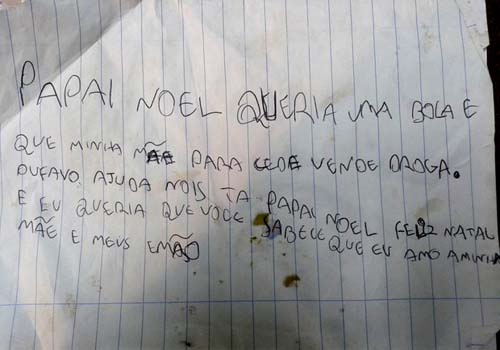 PAPAI NOEL QUERIA UMA BOLA E
QUE MINHA MÃE PARA CEDE VENDE DROGA.
PUFAVO AJUDA NOIS TA PAPAI NOEL FELIZ NATAL
E EU QUERIA QUE VOCE SABECE QUE EU AMO AMINHA
MÃE E MEUS EMÃO